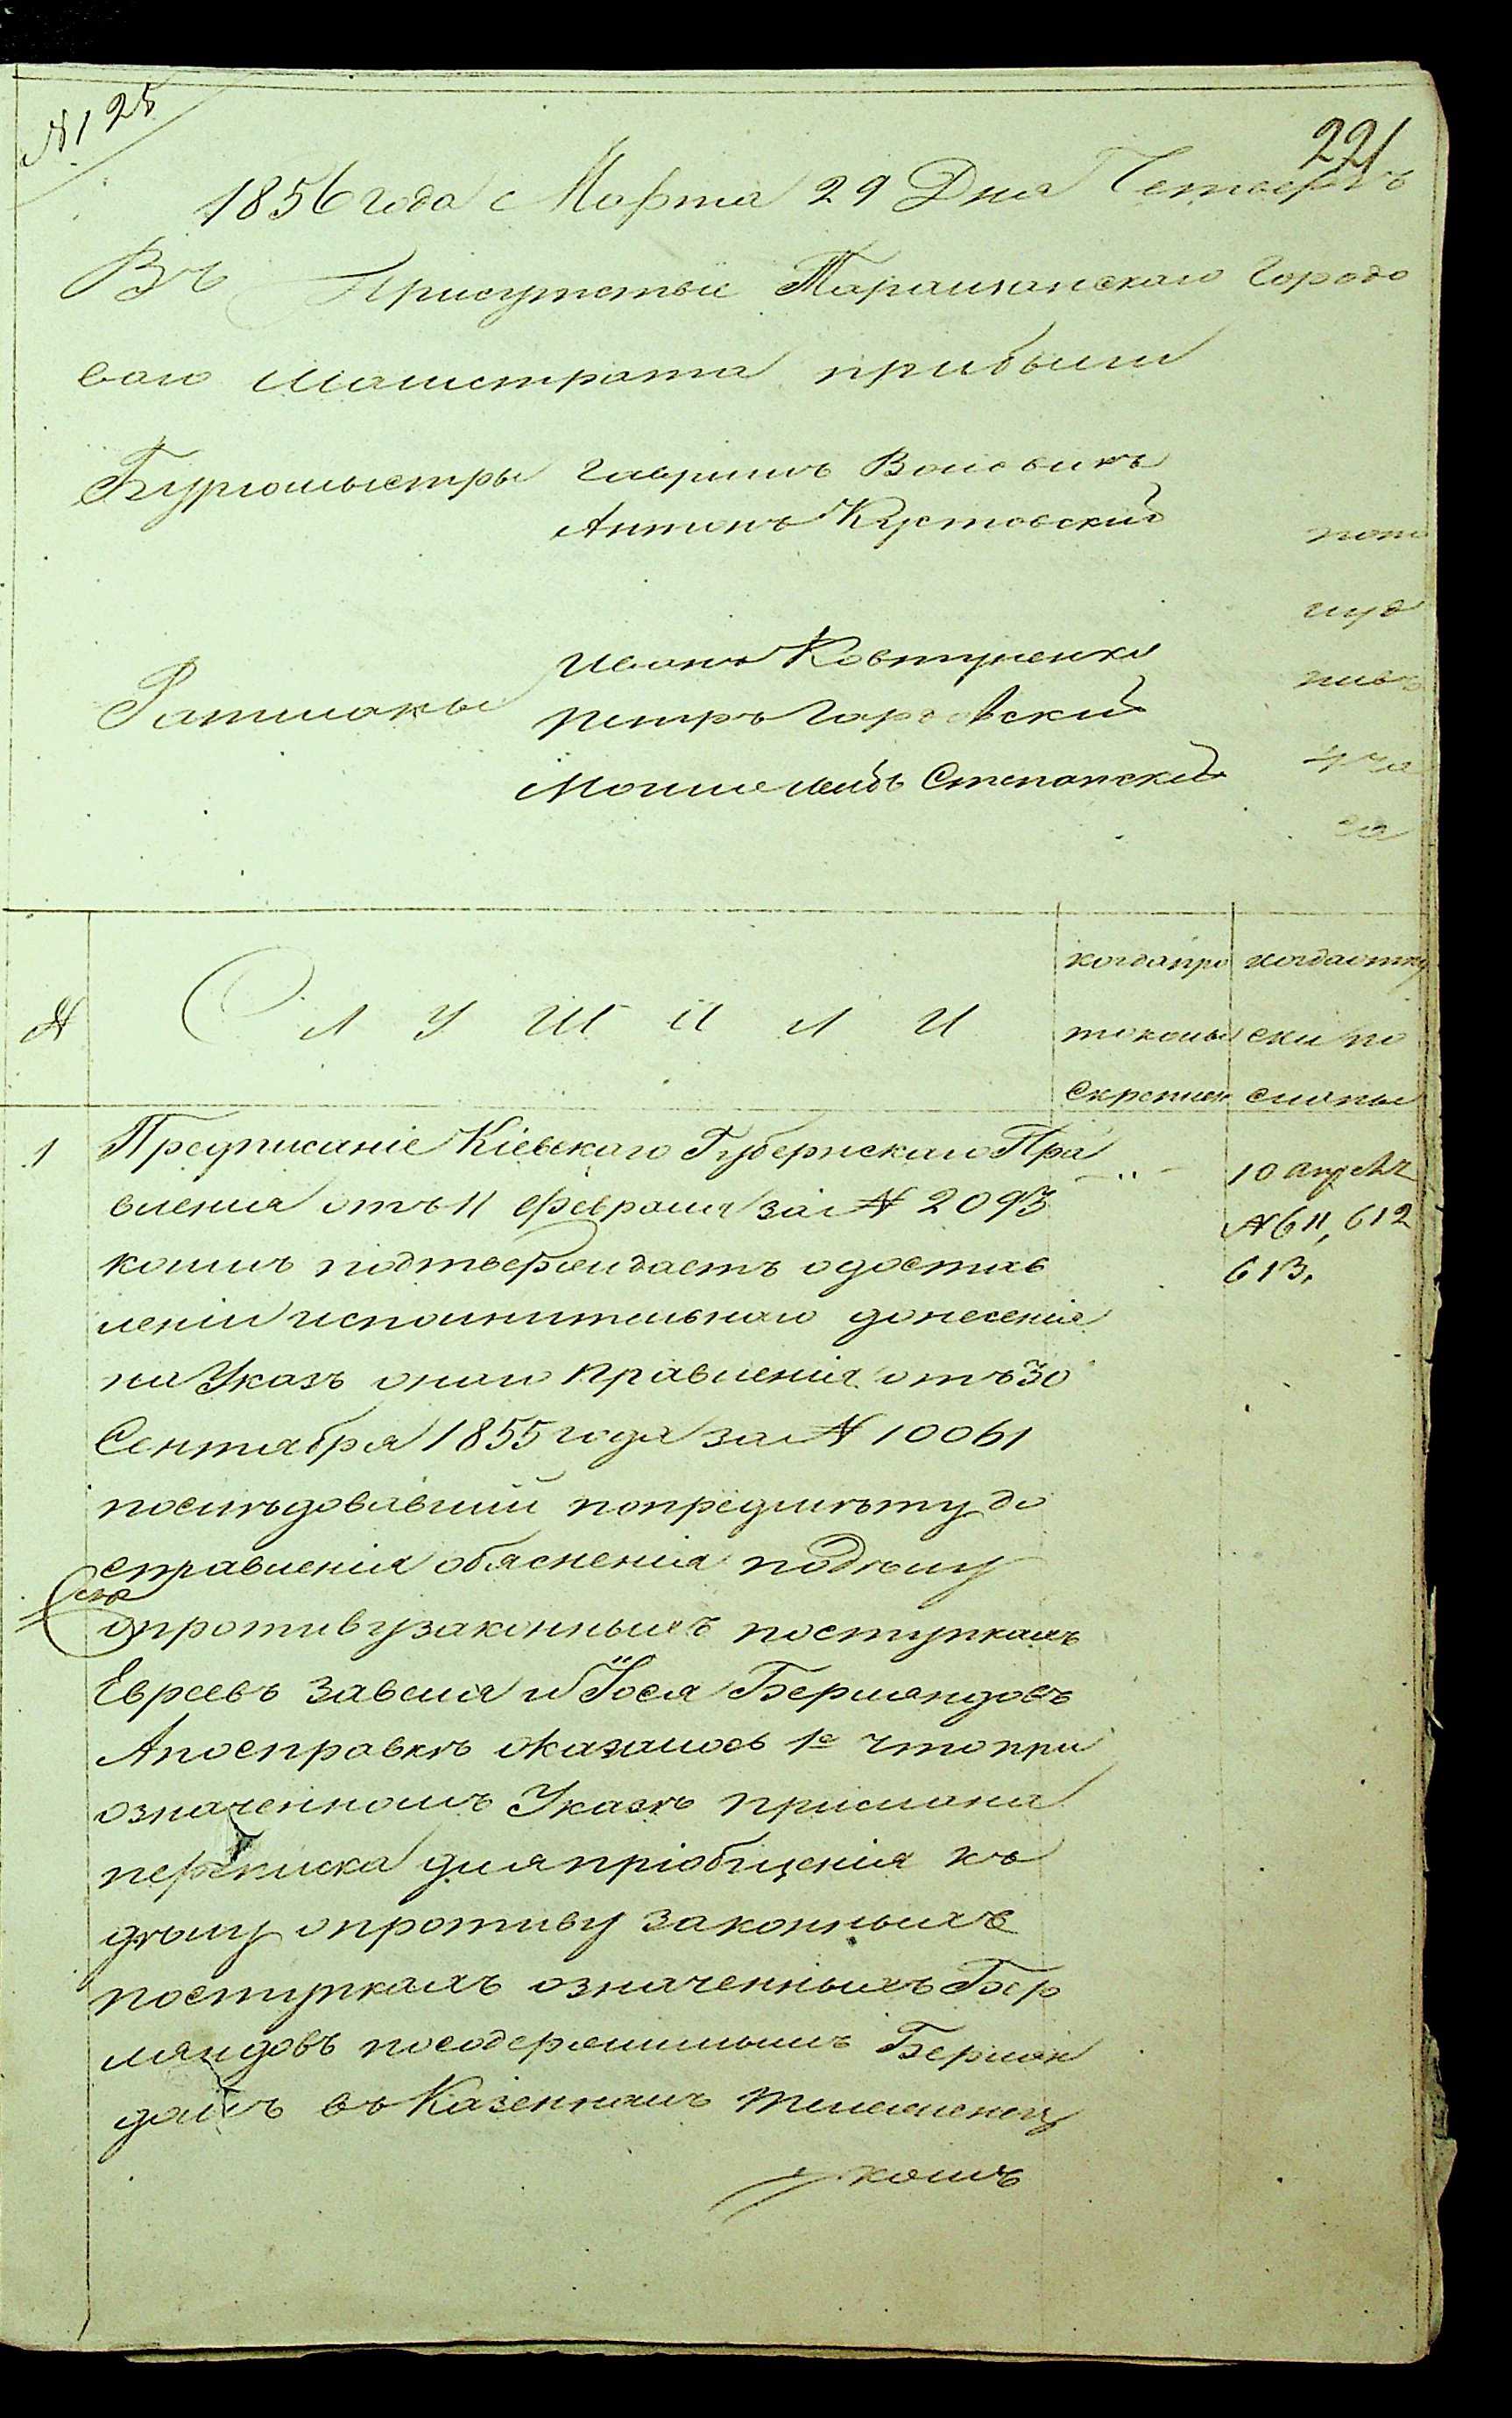 № 125
221
1856 года Марта 29 Дня Четвергъ
Въ Присутствіе Таращанскаго Городо
ваго Магистрата прибыли
Бургомыстры Гаврилъ Воловикъ
Антонъ Кустовский
Иванъ Ковтуненко
Ратманы Петръ Гарновский
Мошме Лейбъ Степанский
№
СЛУШАЛИ
когда про
токолы
скреплен
когда отпу
ски по
сланы
1
Предписаніе Кіевскаго Губернскаго Пра
вленія отъ 11 февраля за № 2093
коимъ подтверждаетъ о достав
леніи исполнительнаго донесенія
на Указъ онаго Правленія отъ 30
Сентября 1855 года за № 10061
послѣдовавший по предмѣту до
ставленія обясненія по дѣлу
о противузаконныхъ поступкахъ
Евреевъ Завеля и Іося Берляндовъ
А по справкѣ оказалось 1е что при
означенномъ Указѣ прислана
переписка для пріобщенія къ
дѣлу о противу законныхъ
поступкахъ означенныхъ Бер
ляндовъ по содержимымъ Берлян
домъ въ Казенномъ
комъ
10 апрѣля
№ 611, 612
613.